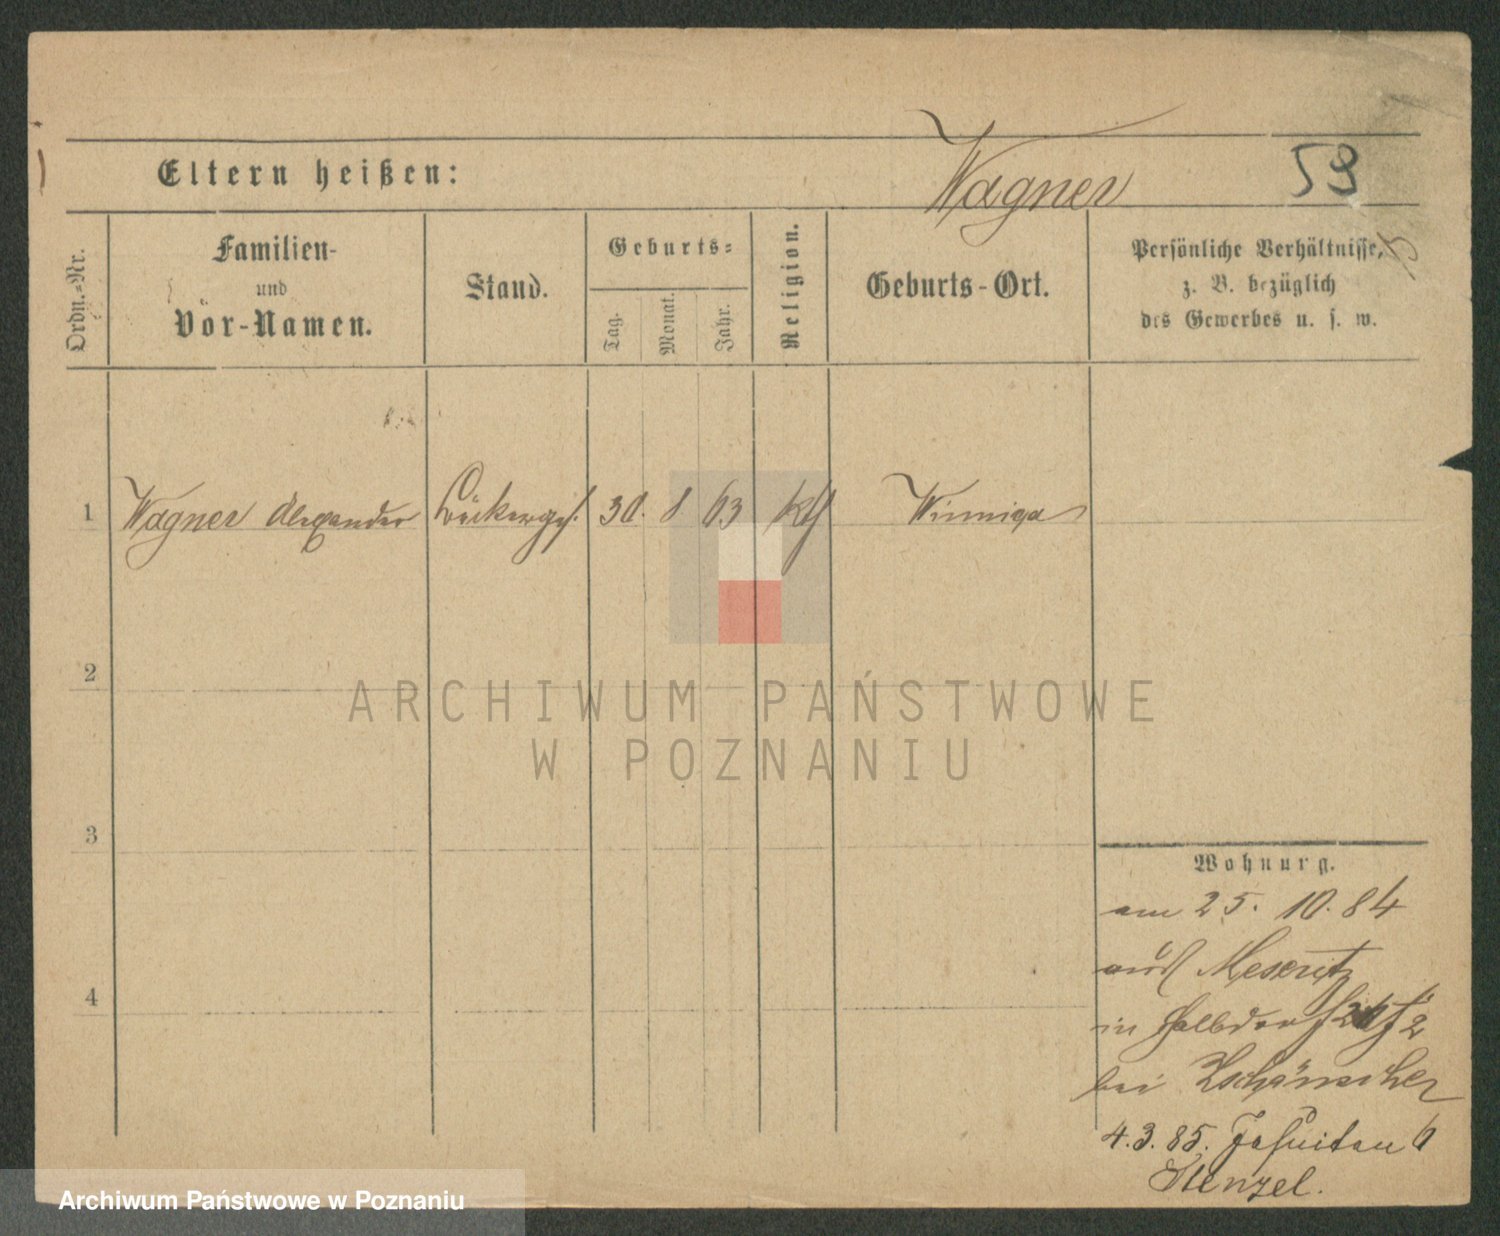 Wagner
59
Eltern heißen:
Ordn.-Nr.
Familien-
und
Vor-Namen.
Stand.
Geburts-
Tag.
Monat.
Jahr.
Religion.
Geburts-Ort.
Persönliche Verhältnisse,
z. B. bezüglich
des Gewerbes u. s. w.
1 Wagner Alexander Bäckerges. 30. 8 63 kth Winniga
2
3
4
ARCHIWUM PAŃSTWOWE
W POZNANIU
Wohnung.
am 25. 10. 84
aus Meseritz
in Halbdorf
bei
4.3.85. Jesuiten 6
Stenzel.
Archiwum Państwowe w Poznaniu